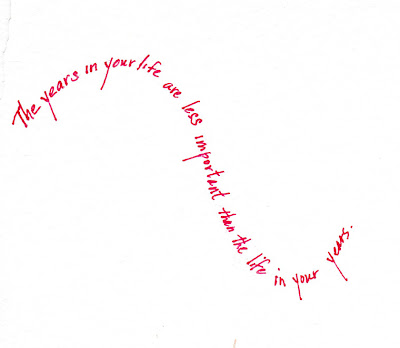 The years in your life are less important than the life in your years.